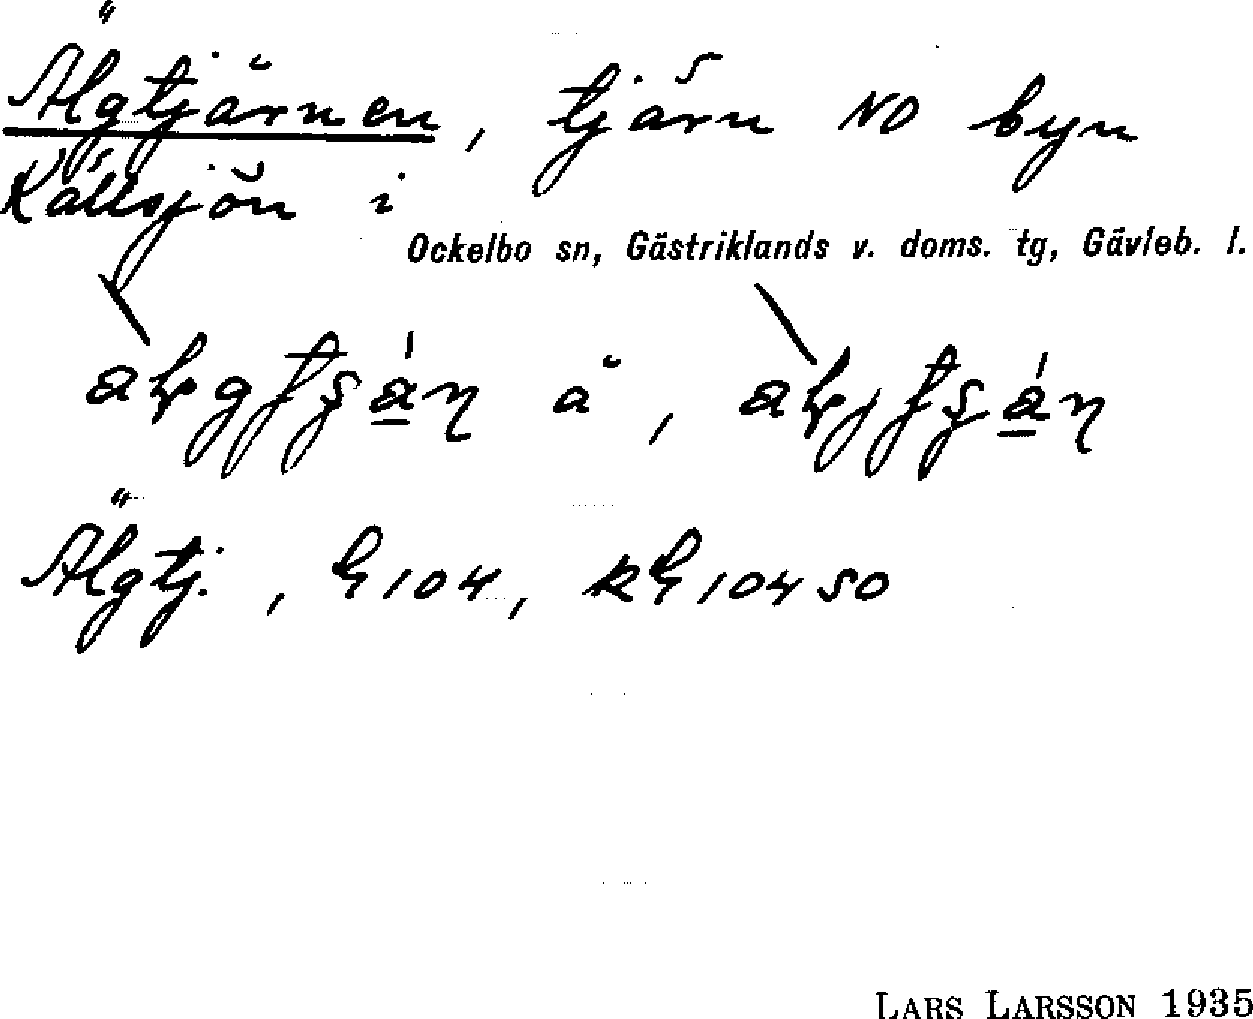 Älgtjärnen, tjärn NO byn
Källsjön i
Ockelbo sn, Gästriklands v. doms. tg, Gävleb. l.
Älgtj., h 104, kh 104 50
LARS LARSSON 1935